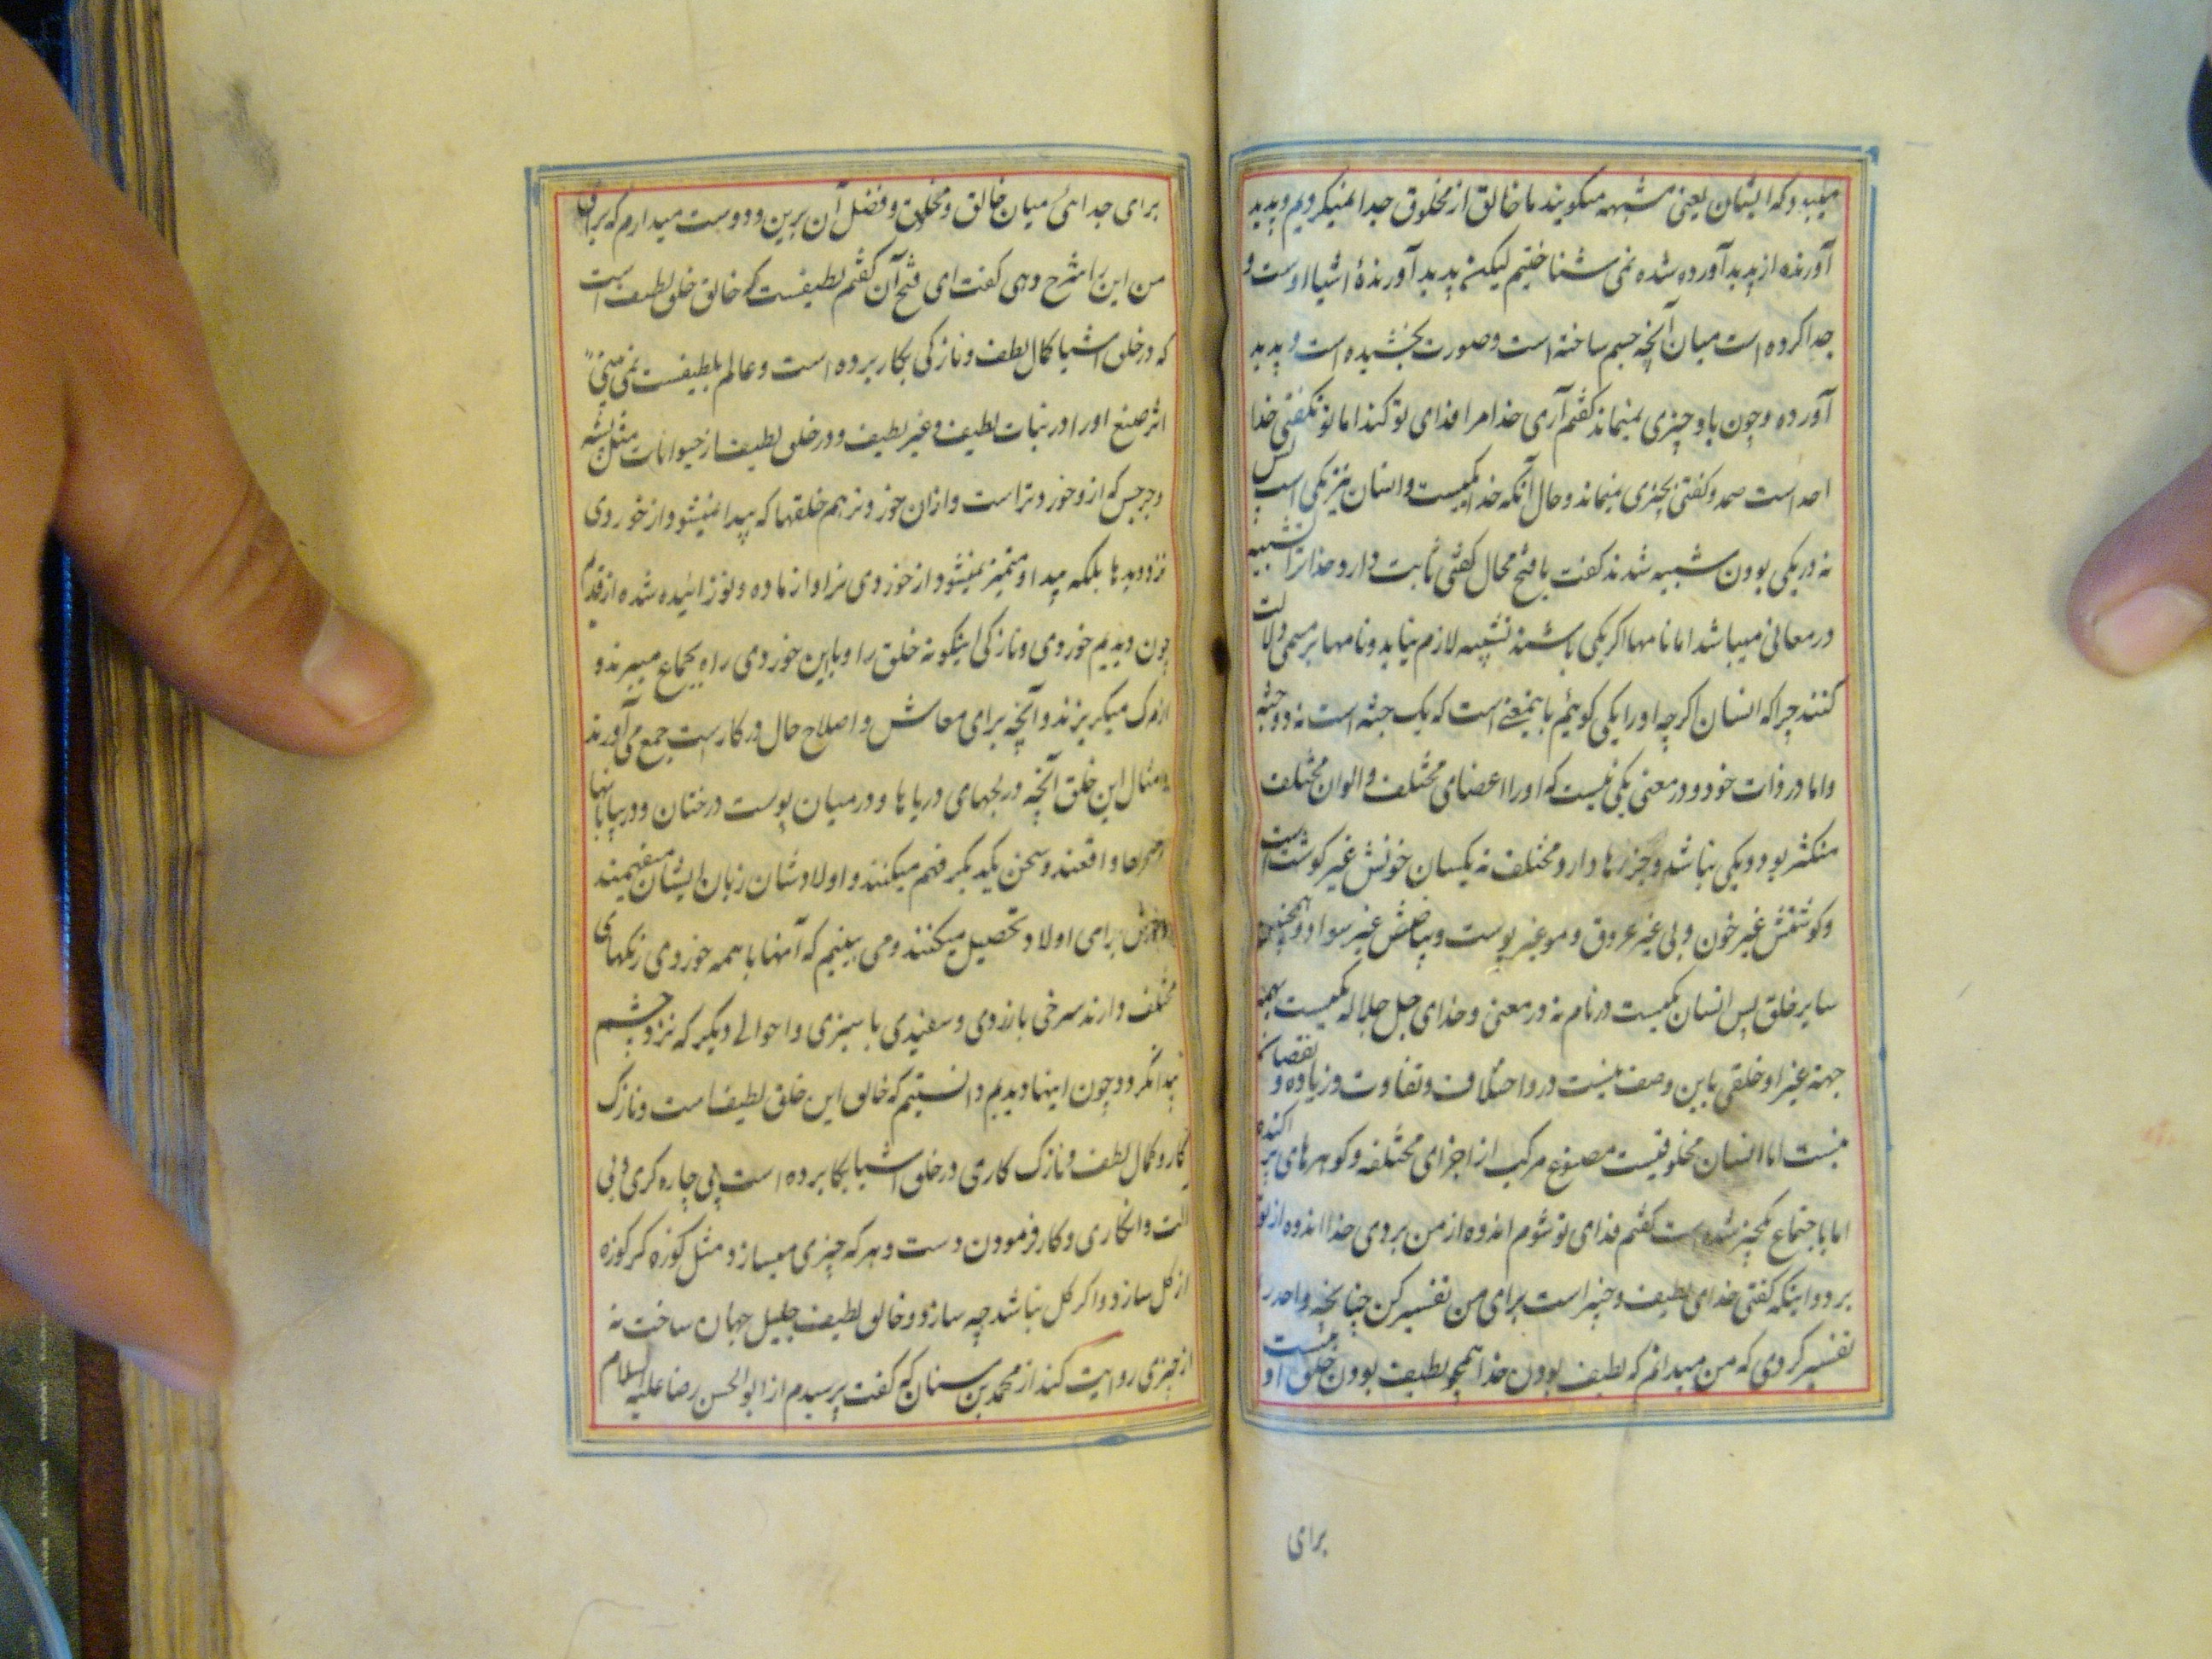 میبود که ایشان یعنی مشبهه میگویند ما خالق از مخلوق جدا نمیکردیم و پدید
آورنده از پدید آورده شده نمی شناختیم لیکن پدید آورندهٔ اشیا اوست و
جدا کرده است میان آنچه جسم ساخته است و صورت بخشیده است و پدید
آورده و چون باو چیزی نمیماند گفتم آری خدا مرا فدای تو کند اما تو نگفتی خدا
احد است صمد و گفتی بچیزی نمیماند و حال آنکه خدا یکیست و انسان نیز یکی است پس
نه در یکی بودن شبیه شدند گفت یا فتح محال گفتی ثابت دارد خدا ترا تشبیه
در معانی میباشد اما نامها اگر یکی باشند تشبیه لازم نیاید و نامها بر مسمی دلالت
کنند چرا که انسان اگرچه او را یکی گوئیم باینمعنی است که یک جثه است نه دو جثه
و اما در ذات خود و در معنی یکی نیست که او را اعضای مختلف و الوان مختلف
متکثر بود و یکی نباشد و جزءها دارد مختلف نه یکسان خونش غیر گوشت است
و گوشتش غیر خون و پی غیر عروق و مو غیر پوست و بیاضش غیر سواد و همچنین
سایر خلق پس انسان یکیست در نام نه در معنی و خدای جل جلاله یکیست بهمه
جهته غیر او خلقی باین وصف نیست در او اختلاف و تفاوت و زیاده و نقصان
نیست اما انسان مخلوقیست مصنوع مرکب از اجزای مختلفه و گوهرهای پراکنده
اما باجتماع یکچیز شده است گفتم فدای تو شوم اندوه از من بردی خدا اندوه از تو
برد و اینکه گفتی خدای لطیف و خبیر است برای من تفسیر کن چنانچه واحد را
تفسیر کردی که من میدانم که لطیف بودن خدا همچو لطیف بودن خلق او نیست
برای
برای جدائی میان خالق و مخلوق و فضل آن برین و دوست میدارم که برای
من این را شرح دهی گفت ای فتح آن گفتم لطیفست که خالق خلق لطیف است
که در خلق اشیا کمال لطف و نازکی بکار برده است و عالم بلطیفست نمی بینی
اثر صنع او را در نبات لطیف و غیر لطیف و در خلق لطیف از حیوانات مثل پشه
و جرجس که ازو خوردتر است و از آن خوردتر هم خلقها که پیدا نمیشود از خوردی
نزد دیدها بلکه پیدا و متمیز نمیشود از خوردی نر او از ماده و نوزائیده شده از قدیم
چون دیدیم خوردی و نازکی اینگونه خلق را و باین خوردی راه بجماع میبرند و
از مرک میگریزند و آنچه برای معاش و اصلاح حال در کار است جمع می آورند
و امثال این خلق آنچه در لجهای دریاها و در میان پوست درختان و در بیابانها
و صحراها واقعند و سخن یکدیگر فهم میکنند و اولادشان زبان ایشان میفهمند
و خورش برای اولاد تحصیل میکنند و می بینیم که آنها با همه خوردی رنگهای
مختلف دارند سرخی با زردی و سفیدی با سبزی و احوالی دیگر که نزد چشم
پیدا نگردد چون اینها دیدیم دانستیم که خالق این خلق لطیف است و نازک
کار و کمال لطف و نازک کاری در خلق اشیا بکار برده است بی چاره گری و بی
آلت و انکاری و کار فرمودن دست و هر که چیزی میسازد مثل کوزه گر کوزه
از گل سازد و اگر گل نباشد چه سازد و خالق لطیف جلیل جهان ساخت نه
از چیزی روایت کند از محمد بن سنان که گفت پرسیدم از ابوالحسن رضا علیه السلام